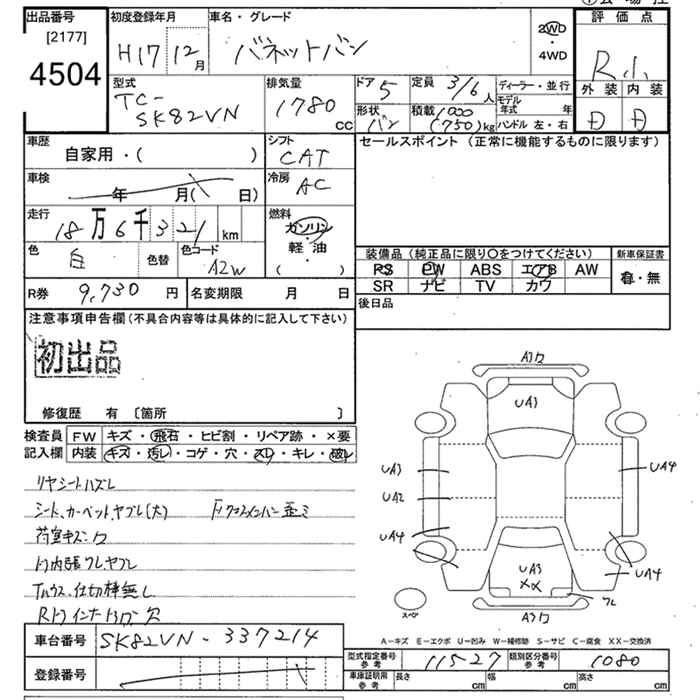 出品番号 初度登録年月 車名・グレード 2WD・4WD 評価点
[2177]
4504 H17 12月 バネットバン R.小
型式 排気量 ドア 5 定員 3/6人 ディーラー・並行 外装 内装
TC-SK82VN 1780cc 形状 バン 積載 1000(750)kg モデル年式 年 ハンドル 左・右 D D
車歴 シフト セールスポイント(正常に機能するものに限ります)
自家用・( ) CAT
車検 年 月( 日) 冷房 AC
走行 18万6千321km 燃料 ガソリン・軽油( )
色 白 色替 色コード A2W
装備品(純正品に限り○をつけてください) 新車保証書
PS PW ABS エアB AW 有・無
SR ナビ TV カワ
R券 9,730円 名変期限 月 日 後日品
注意事項申告欄(不具合内容等は具体的に記入して下さい)
初出品
修復歴 有 〔箇所 〕
検査員記入欄 FW キズ・飛石・ヒビ割・リペア跡・×要
内装 キズ・汚レ・コゲ・穴・スレ・キレ・破レ
リヤシートハズレ
シート、カーペットヤブレ(大) Fクロスメンバー歪ミ
荷室キズ
内張ワレヤブレ
仕切棒無し
穴
A3 UA3 UA3 UA2 UA4 UA4 UA4 UA3 XX ワレ A3 スペア
A－キズ E－エクボ U－凹み W－補修跡 S－サビ C－腐食 XX－交換済
車台番号 SK82VN-337214
型式指定番号 参考 11527 類別区分番号 参考 1080
登録番号
車庫証明用 参考 長さ cm 幅 cm 高さ cm